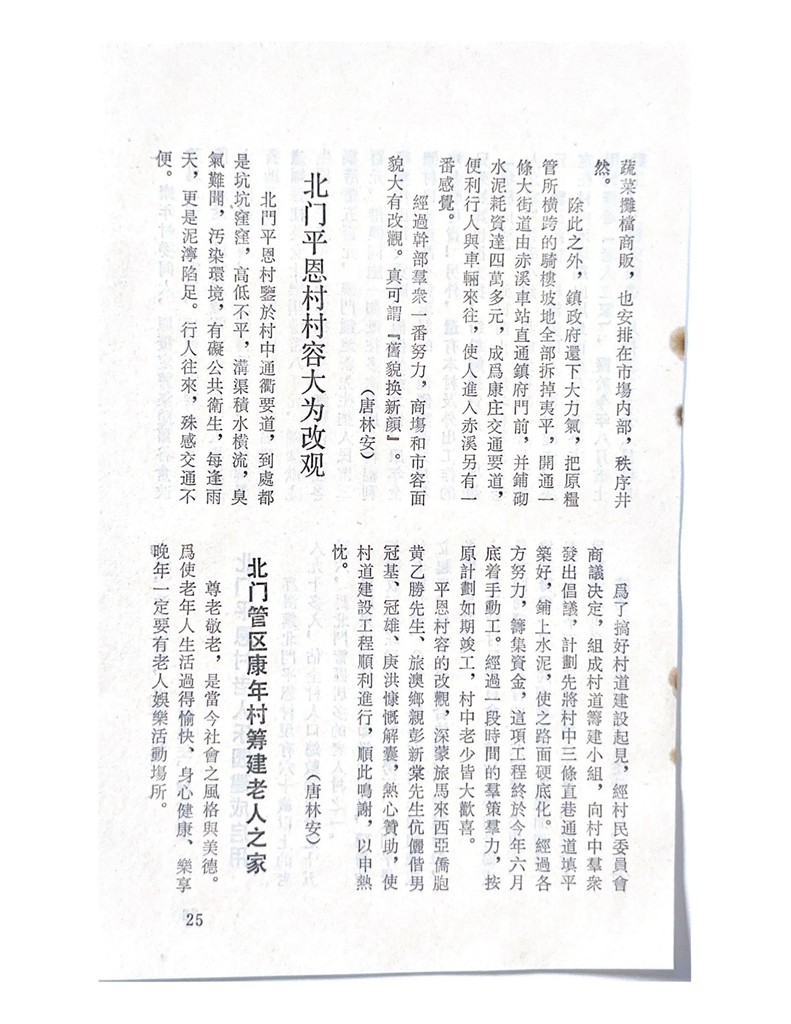 蔬菜攤檔商販，也安排在市場内部，秩序井
然。
除此之外，鎮政府還下大力氣，把原糧
管所橫跨的騎樓坡地全部拆掉夷平，開通一
條大街道由赤溪車站直通鎮府門前，并鋪砌
水泥耗資達四萬多元，成爲康庄交通要道，
便利行人與車輛來往，使人進入赤溪另有一
番感覺。
經過幹部羣衆一番努力，商塲和市容面
貌大有改觀。真可謂『舊貌换新顔』。
（唐林安）
北门平恩村村容大为改观
北門平恩村鑒於村中通衢要道，到處都
是坑坑窪窪，高低不平，溝渠積水橫流，臭
氣難聞，汚染環境，有礙公共衛生，每逢雨
天，更是泥濘陷足。行人往來，殊感交通不
便。
爲了搞好村道建設起見，經村民委員會
商議决定，組成村道籌建小組，向村中羣衆
發出倡議，計劃先將村中三條直巷通道填平
築好，鋪上水泥，使之路面硬底化。經過各
方努力，籌集資金，這項工程終於今年六月
底着手動工。經過一段時間的羣策羣力，按
原計劃如期竣工，村中老少皆大歡喜。
平恩村容的改觀，深蒙旅馬來西亞僑胞
黄乙勝先生、旅澳鄉親彭新棠先生伉儷偕男
冠基、冠雄、庚洪慷慨解囊，熱心贊助，使
村道建設工程順利進行，順此鳴謝，以申熱
忱。
（唐林安）
北门管区康年村筹建老人之家
尊老敬老，是當今社會之風格與美德。
爲使老年人生活過得愉快、身心健康、樂享
晚年一定要有老人娛樂活動塲所。
25